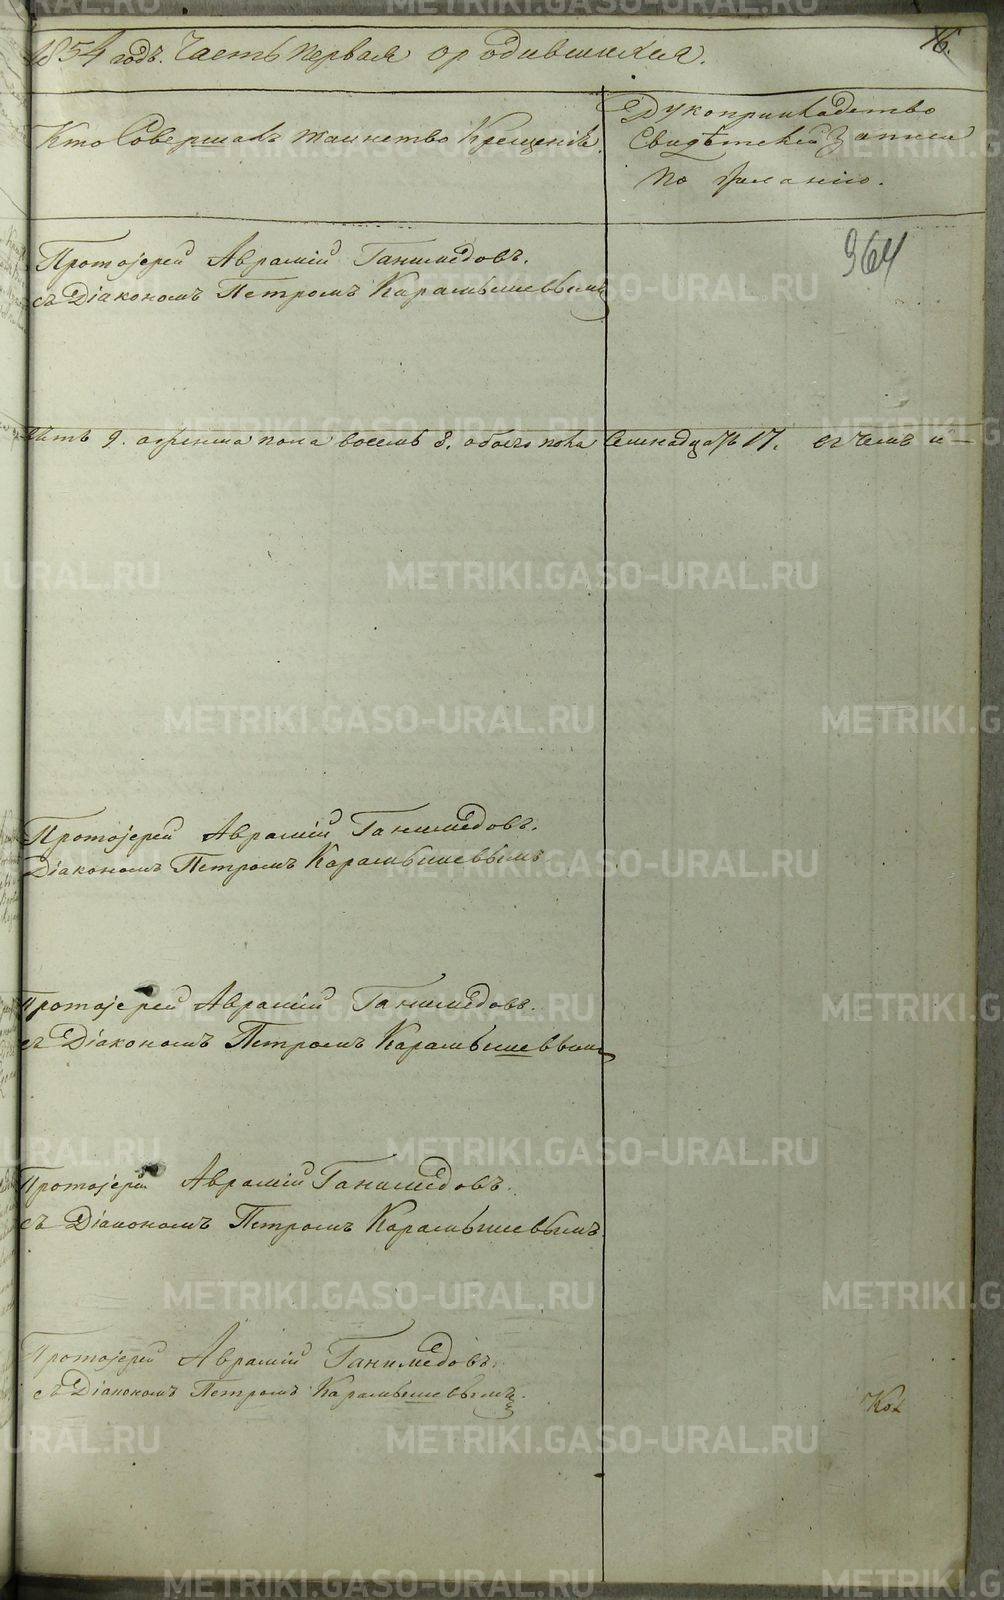 1854 годъ. Часть первая о родившихся.
16.
Кто Совершалъ таинство Крещенiя.
Рукоприкладство
Свидѣтелей записи
по желанiю.
964
Протоjерей Аврамiй Ганимедовъ.
съ Дiакономъ Петромъ Карамышевымъ
9. а женска пола восемь 8. обоего пола семнадцать 17. въ чемъ и
Протоjерей Аврамiй Ганимедовъ.
Дiакономъ Петромъ Карамышевымъ
Протоjерей Аврамiй Ганимедовъ.
съ Дiакономъ Петромъ Карамышеввымъ
Протоjерей Аврамiй Ганимедовъ.
съ Дiакономъ Петромъ Карамышевымъ
Протоjерей Аврамiй Ганимедовъ.
съ Дiакономъ Петромъ Карамышевымъ.
METRIKI.GASO-URAL.RU